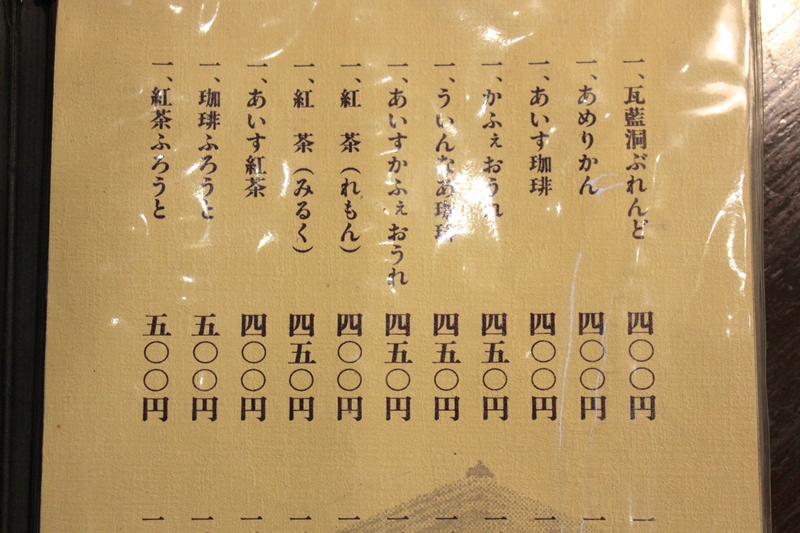 一、瓦藍洞ぶれんど 四〇〇円
一、あめりかん 四〇〇円
一、あいす珈琲 四〇〇円
一、かふぇおうれ 四五〇円
一、ういんなあ珈琲 四五〇円
一、あいすかふぇおうれ 四五〇円
一、紅 茶（れもん） 四〇〇円
一、紅 茶（みるく） 四五〇円
一、あいす紅茶 四〇〇円
一、珈琲ふろうと 五〇〇円
一、紅茶ふろうと 五〇〇円
一
一
一
一
一
一
一
一
一
一
一